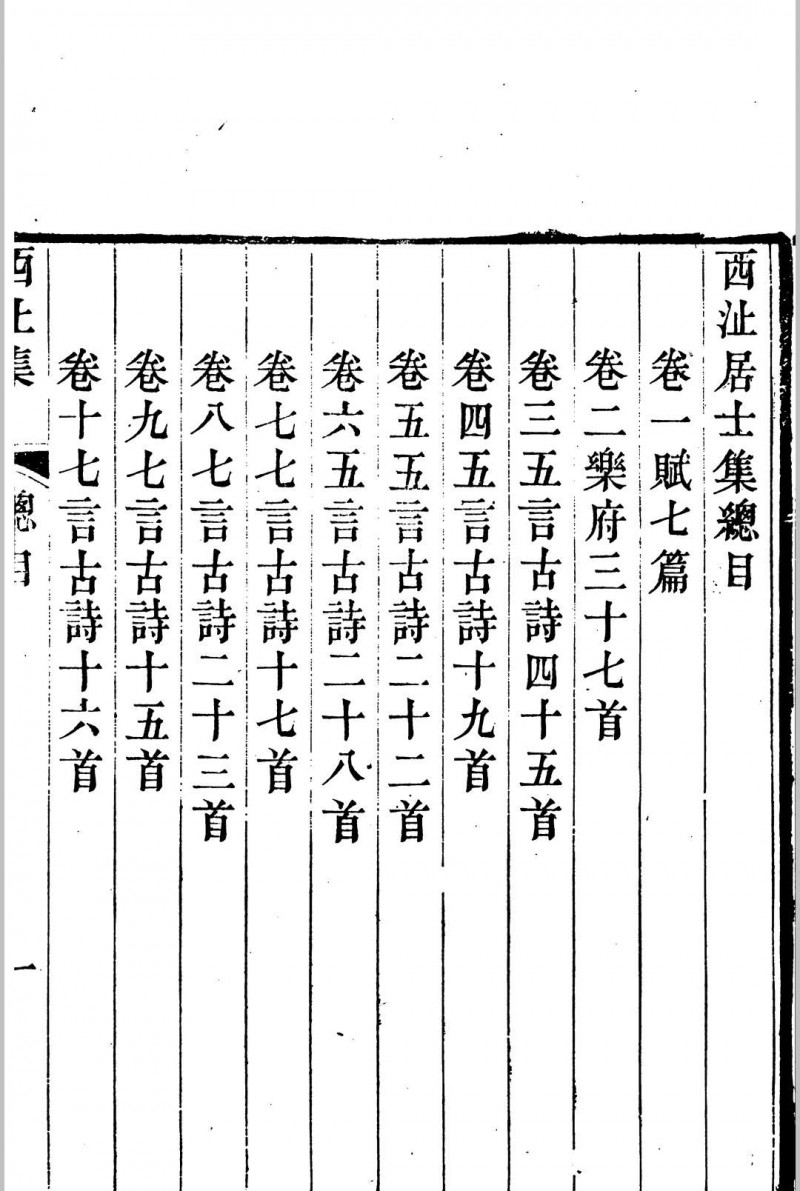 西沚居士集總目
卷一賦七篇
卷二樂府三十七首
卷三五言古詩四十五首
卷四五言古詩十九首
卷五五言古詩二十二首
卷六五言古詩二十八首
卷七七言古詩十七首
卷八七言古詩二十三首
卷九七言古詩十五首
卷十七言古詩十六首
西沚集
總目
一